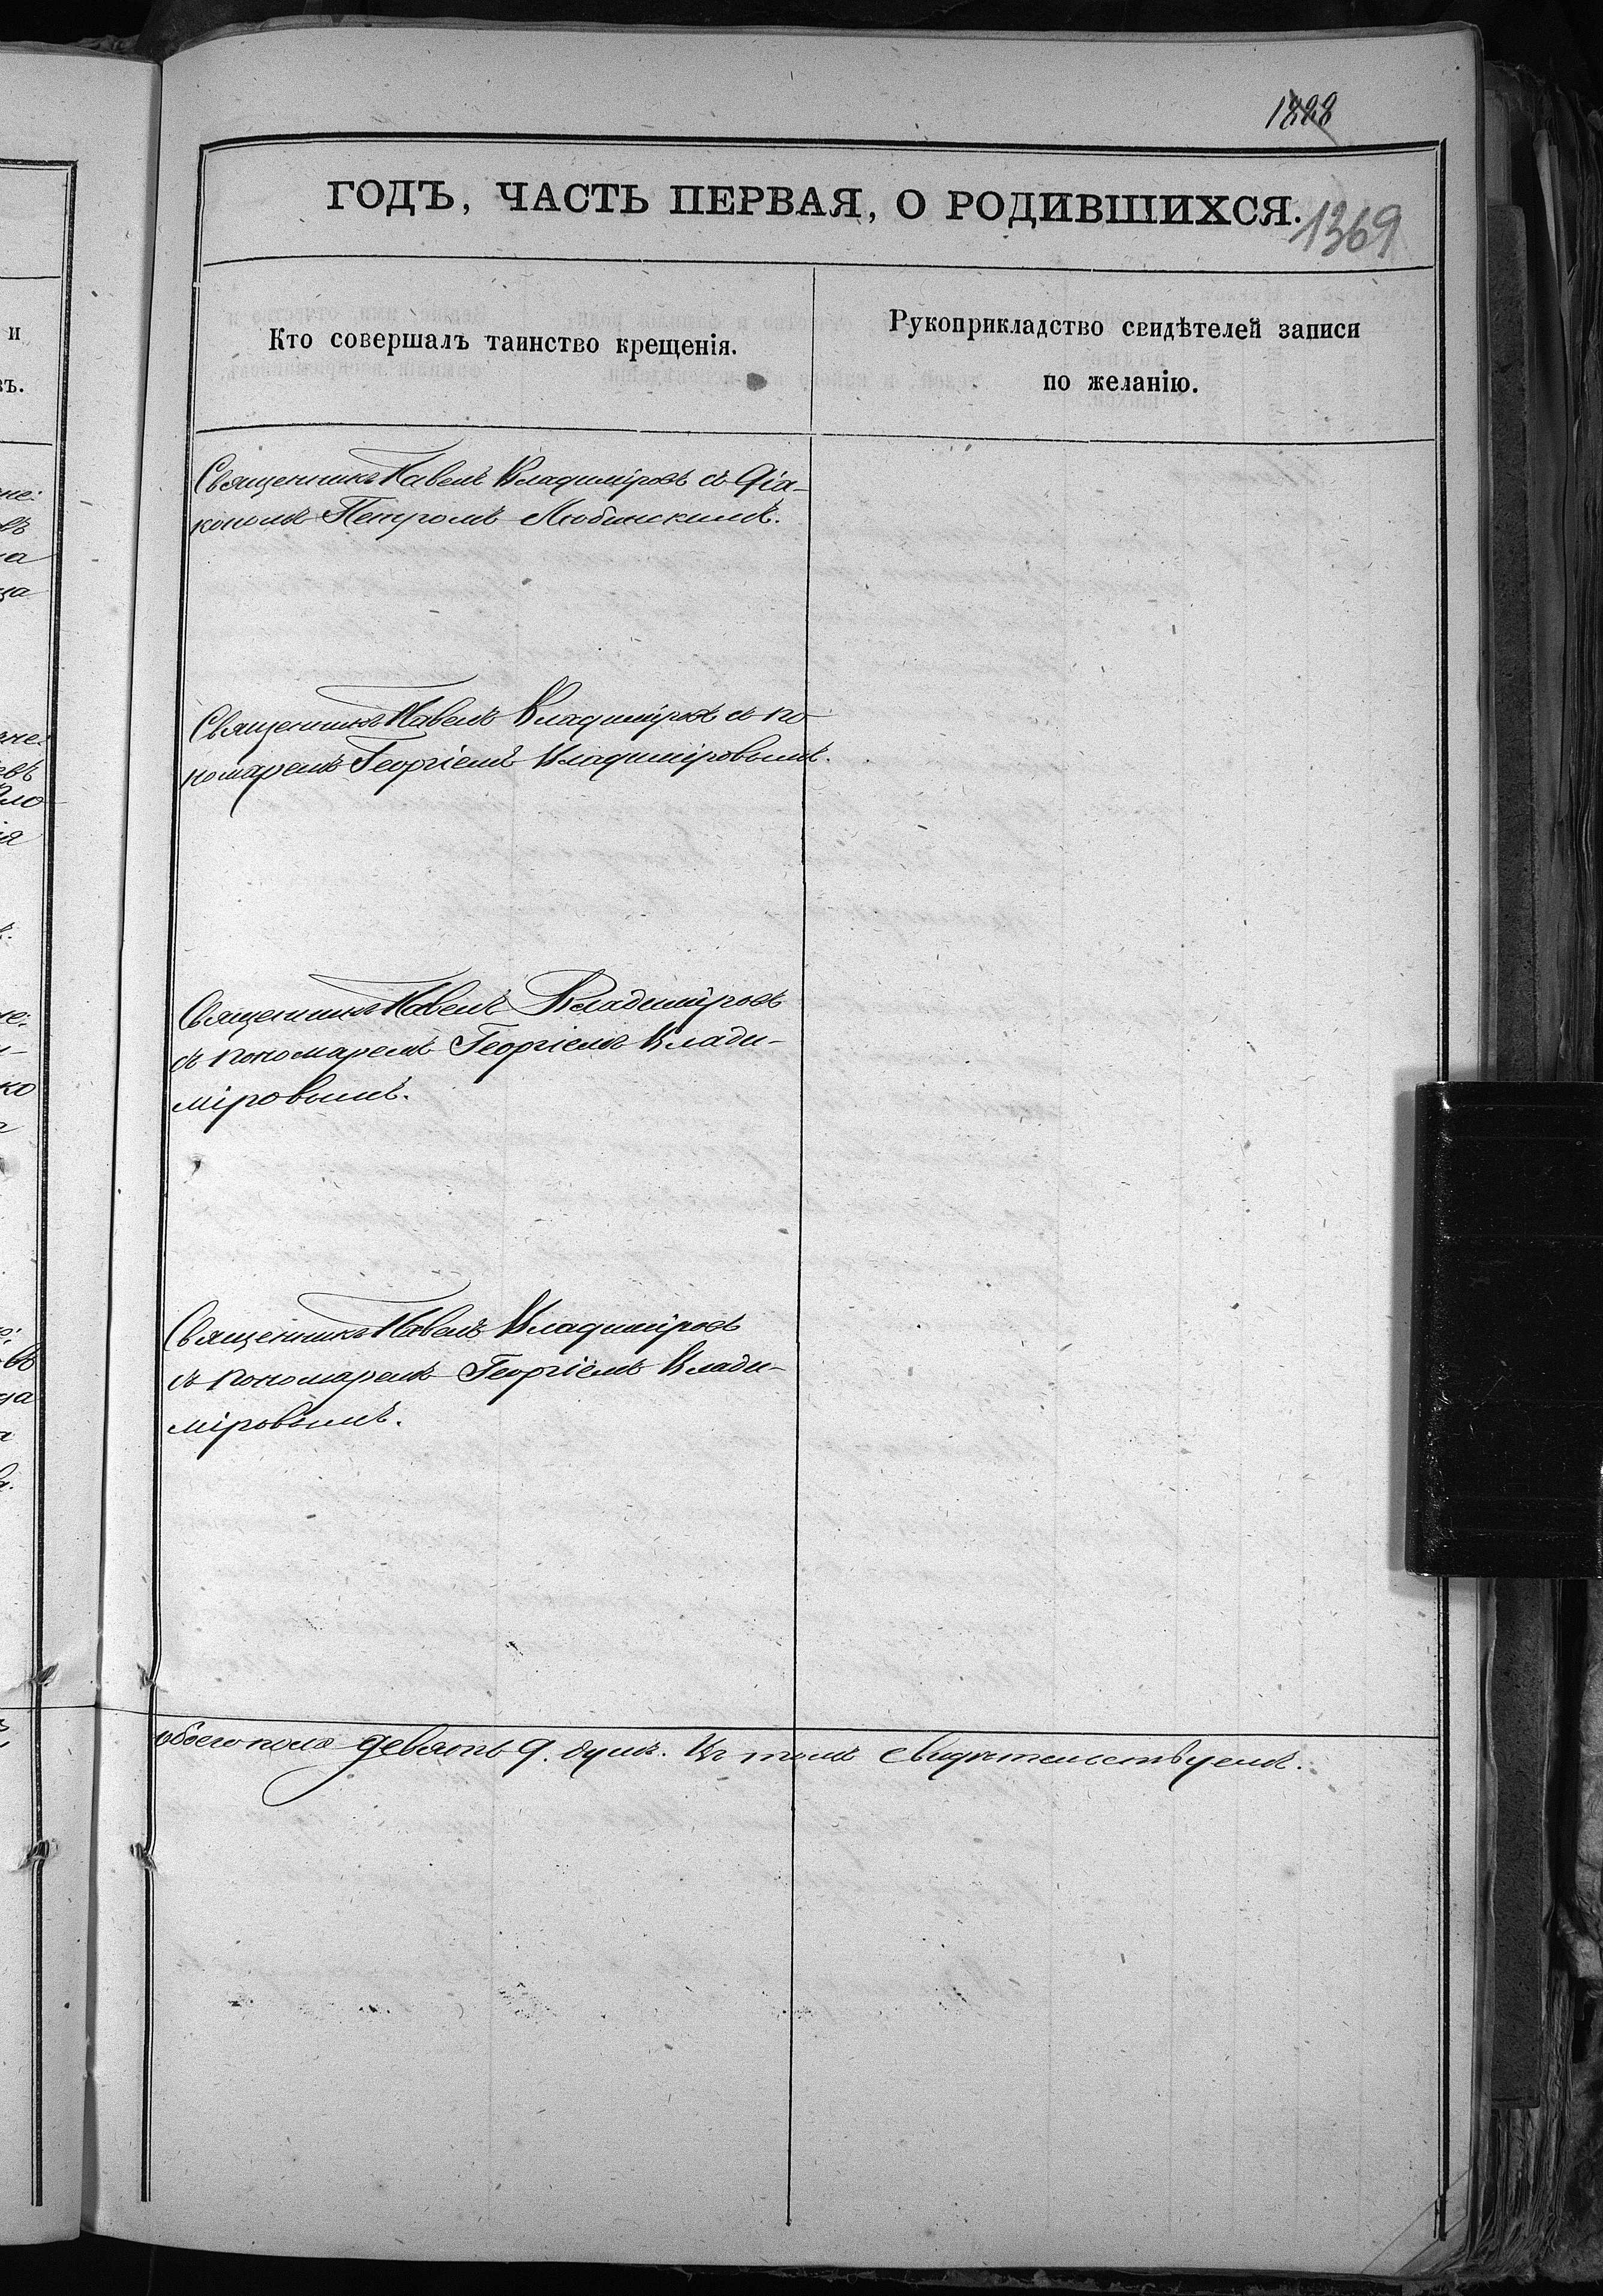 1328
ГОДЪ, ЧАСТЬ ПЕРВАЯ, О РОДИВШИХСЯ.
1369
Кто совершалъ таинство крещенія.
Рукоприкладство свидѣтелей записи
по желанію.
Священникъ Павелъ Владиміровъ съ Діа-
кономъ Петромъ Любинскимъ.
Священникъ Павелъ Владиміровъ съ по-
номаремъ Георгіемъ Владиміровымъ.
Священникъ Павелъ Владиміровъ
съ пономаремъ Георгіемъ Влади-
міровымъ.
Священникъ Павелъ Владиміровъ
съ пономаремъ Георгіемъ Влади-
міровымъ.
обоего пола девять 9. душъ. Въ томъ свидѣтельствуемъ.